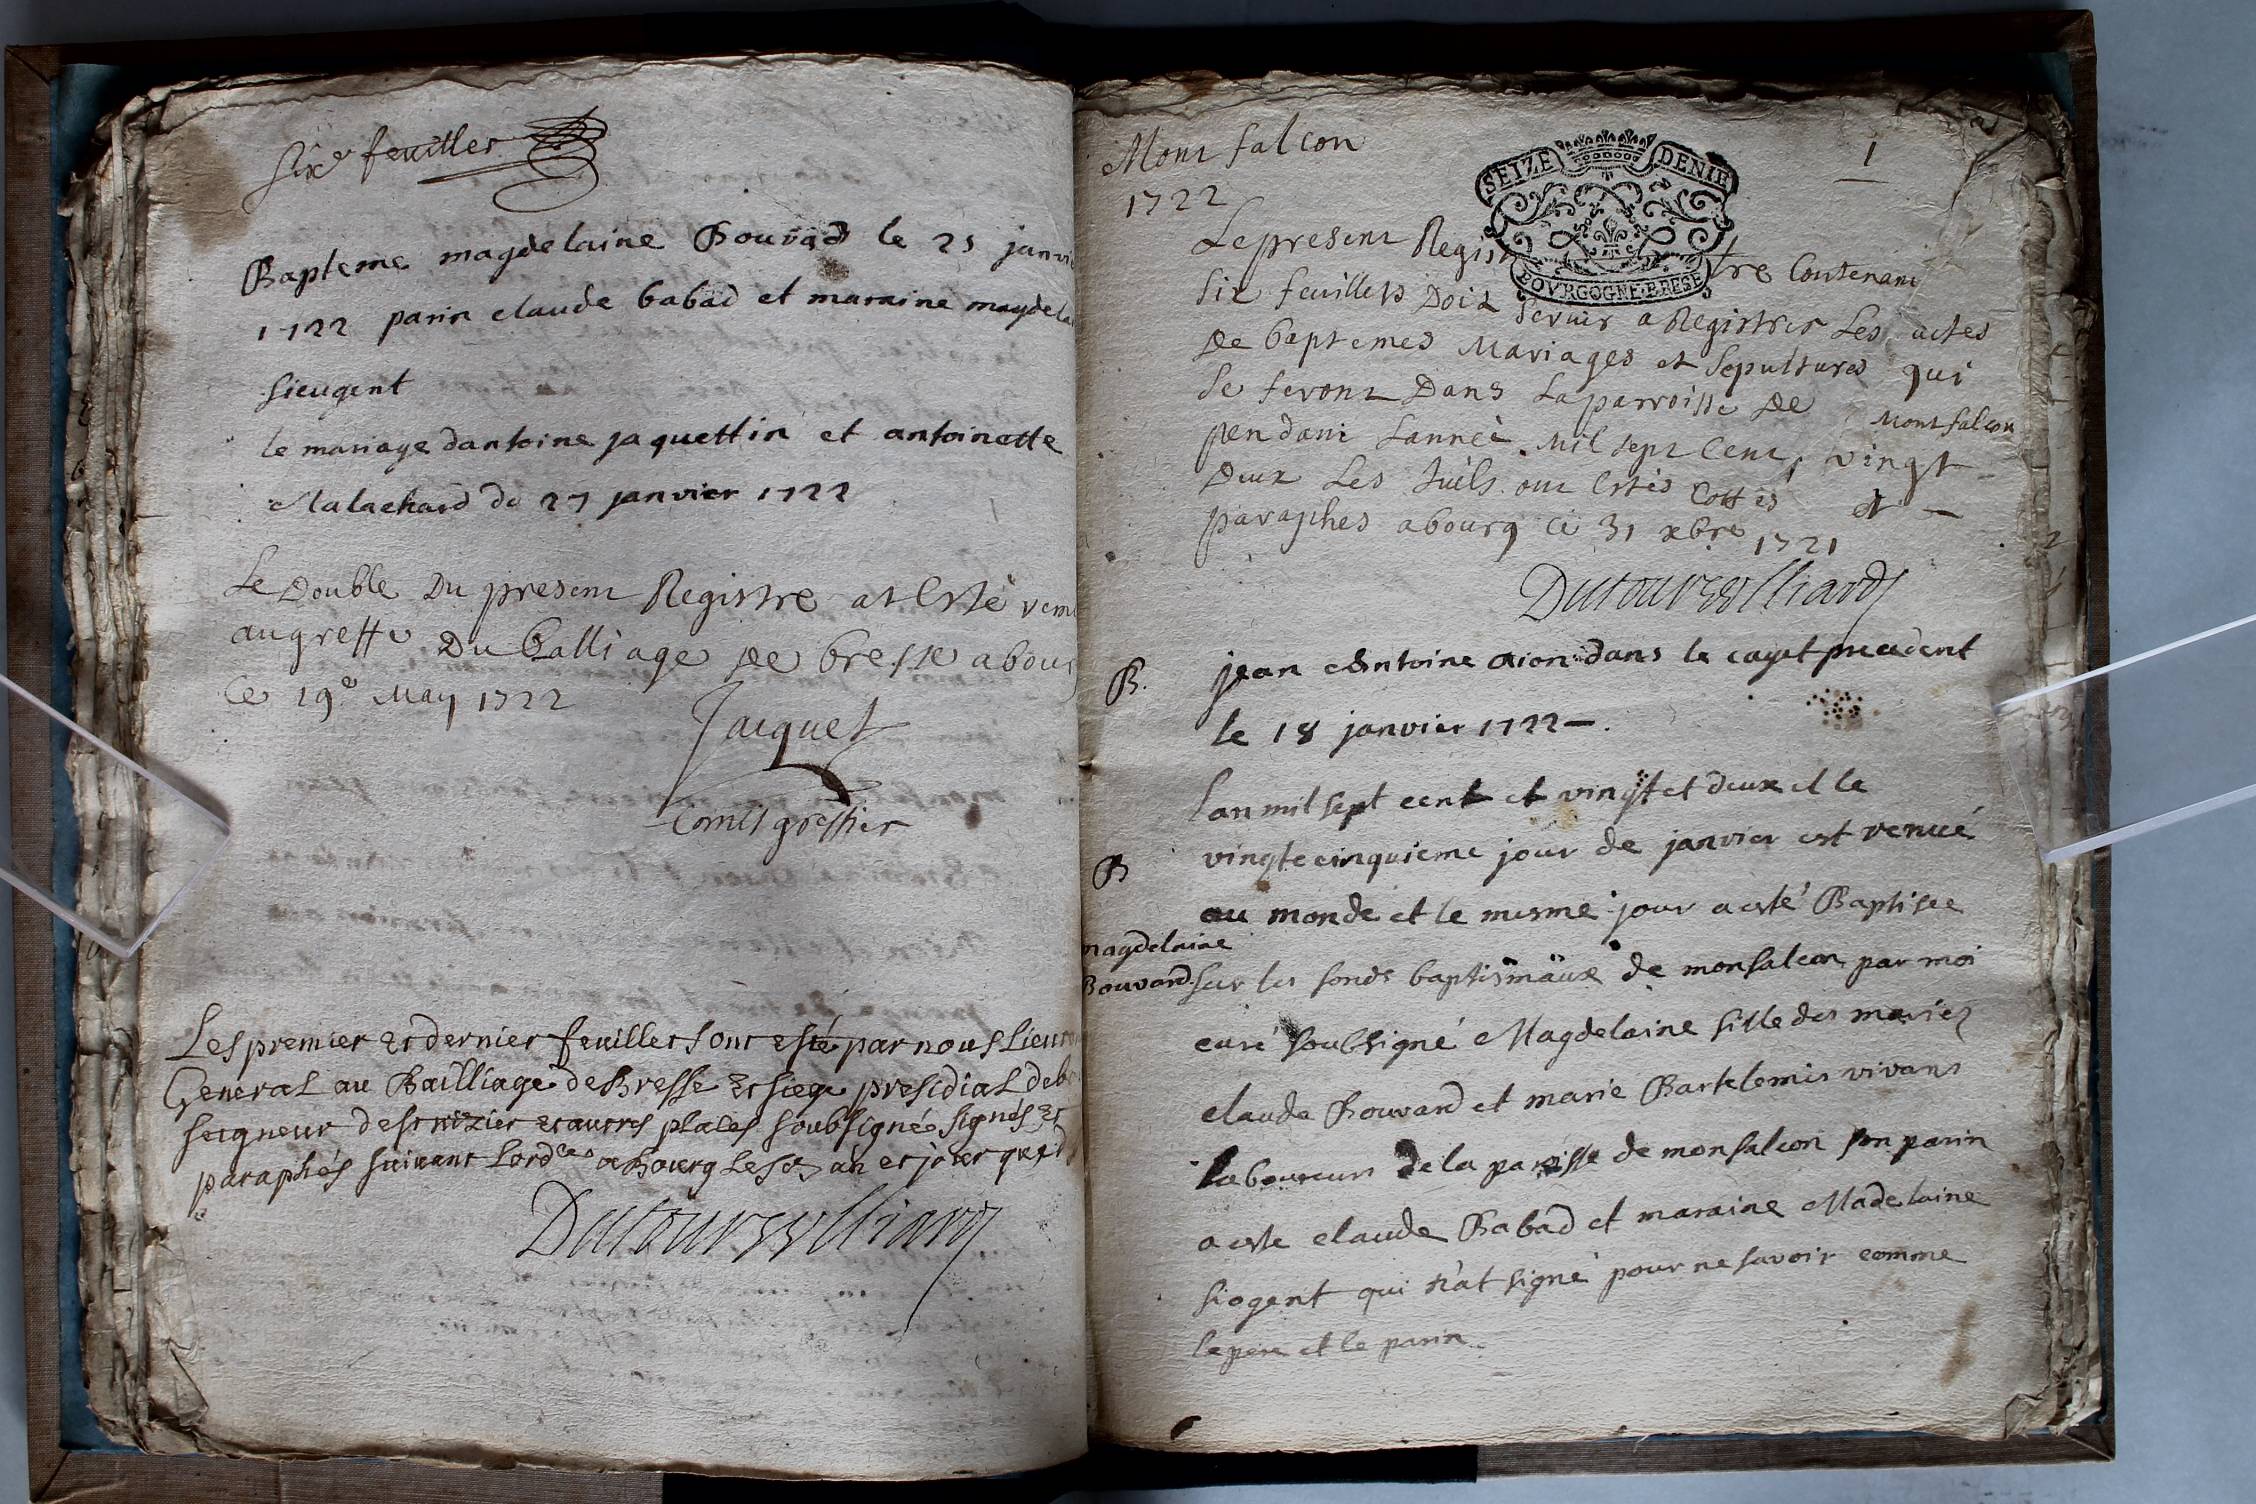 six feuillets
Bapteme magdelaine Bouvad le 25 janvie
1722 parin claude babad et maraine magdela
sieugent
le mariage dantoine jaquettin et antoinette
Malachard du 27 janvier 1722
Le Double Du present Registre at Esté remi
au greffe Du balliage de bresse a bourg
Ce 19e May 1722
Jacquet
Comis greffier
Les premier et dernier feuillets ont esté par nous Lieuten
General au Bailliage de Bresse et siege presidial de bo
seigneur de st nizier et autres places soubsignée signés et
paraphés suivant Lordce a Bourg les an et jour que
Dutour Vulliard
Mont falcon
1
1722
SEIZE DENIE
BOVRGOGNE·BRESE
Le present Registre Contenant
six feuillets Doit servir a Registrer Les actes
De baptemes Mariages et sepultures qui
se feront Dans La parroisse de Montfalcon
pendant Lanneé Mil sept Cent vingt
Deux Les fuils ont Estés Cottés et
paraphes a bourg Ce 31 xbre 1721
Dutour Vulliard
B. jean Antoine aion dans le cayet precedent
le 18 janvier 1722 —.
Lan mil sept cent et vingt et deux et le
B vingtecinquieme jour de janvier est venué
au monde et le mesme jour a esté Baptisee
magdelaine
Bouvard sur les fonds baptismäux de monfalcon par moi
curé soubsigné Magdelaine fille des mariez
claude Bouvard et marie Bartelemis vivans
laboureurs de la paroisse de monfalcon son parin
a este claude Babad et maraine Madelaine
siogent qui n'at signé pour ne savoir comme
le pere et le parin